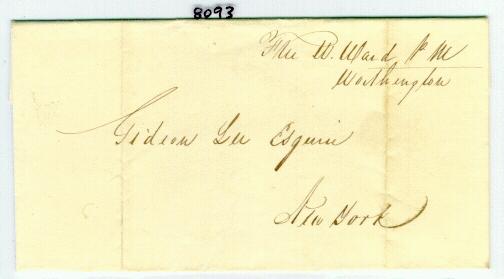 8093
Free W. Ward P M
Worthington
Gideon Lee Esquire
New York